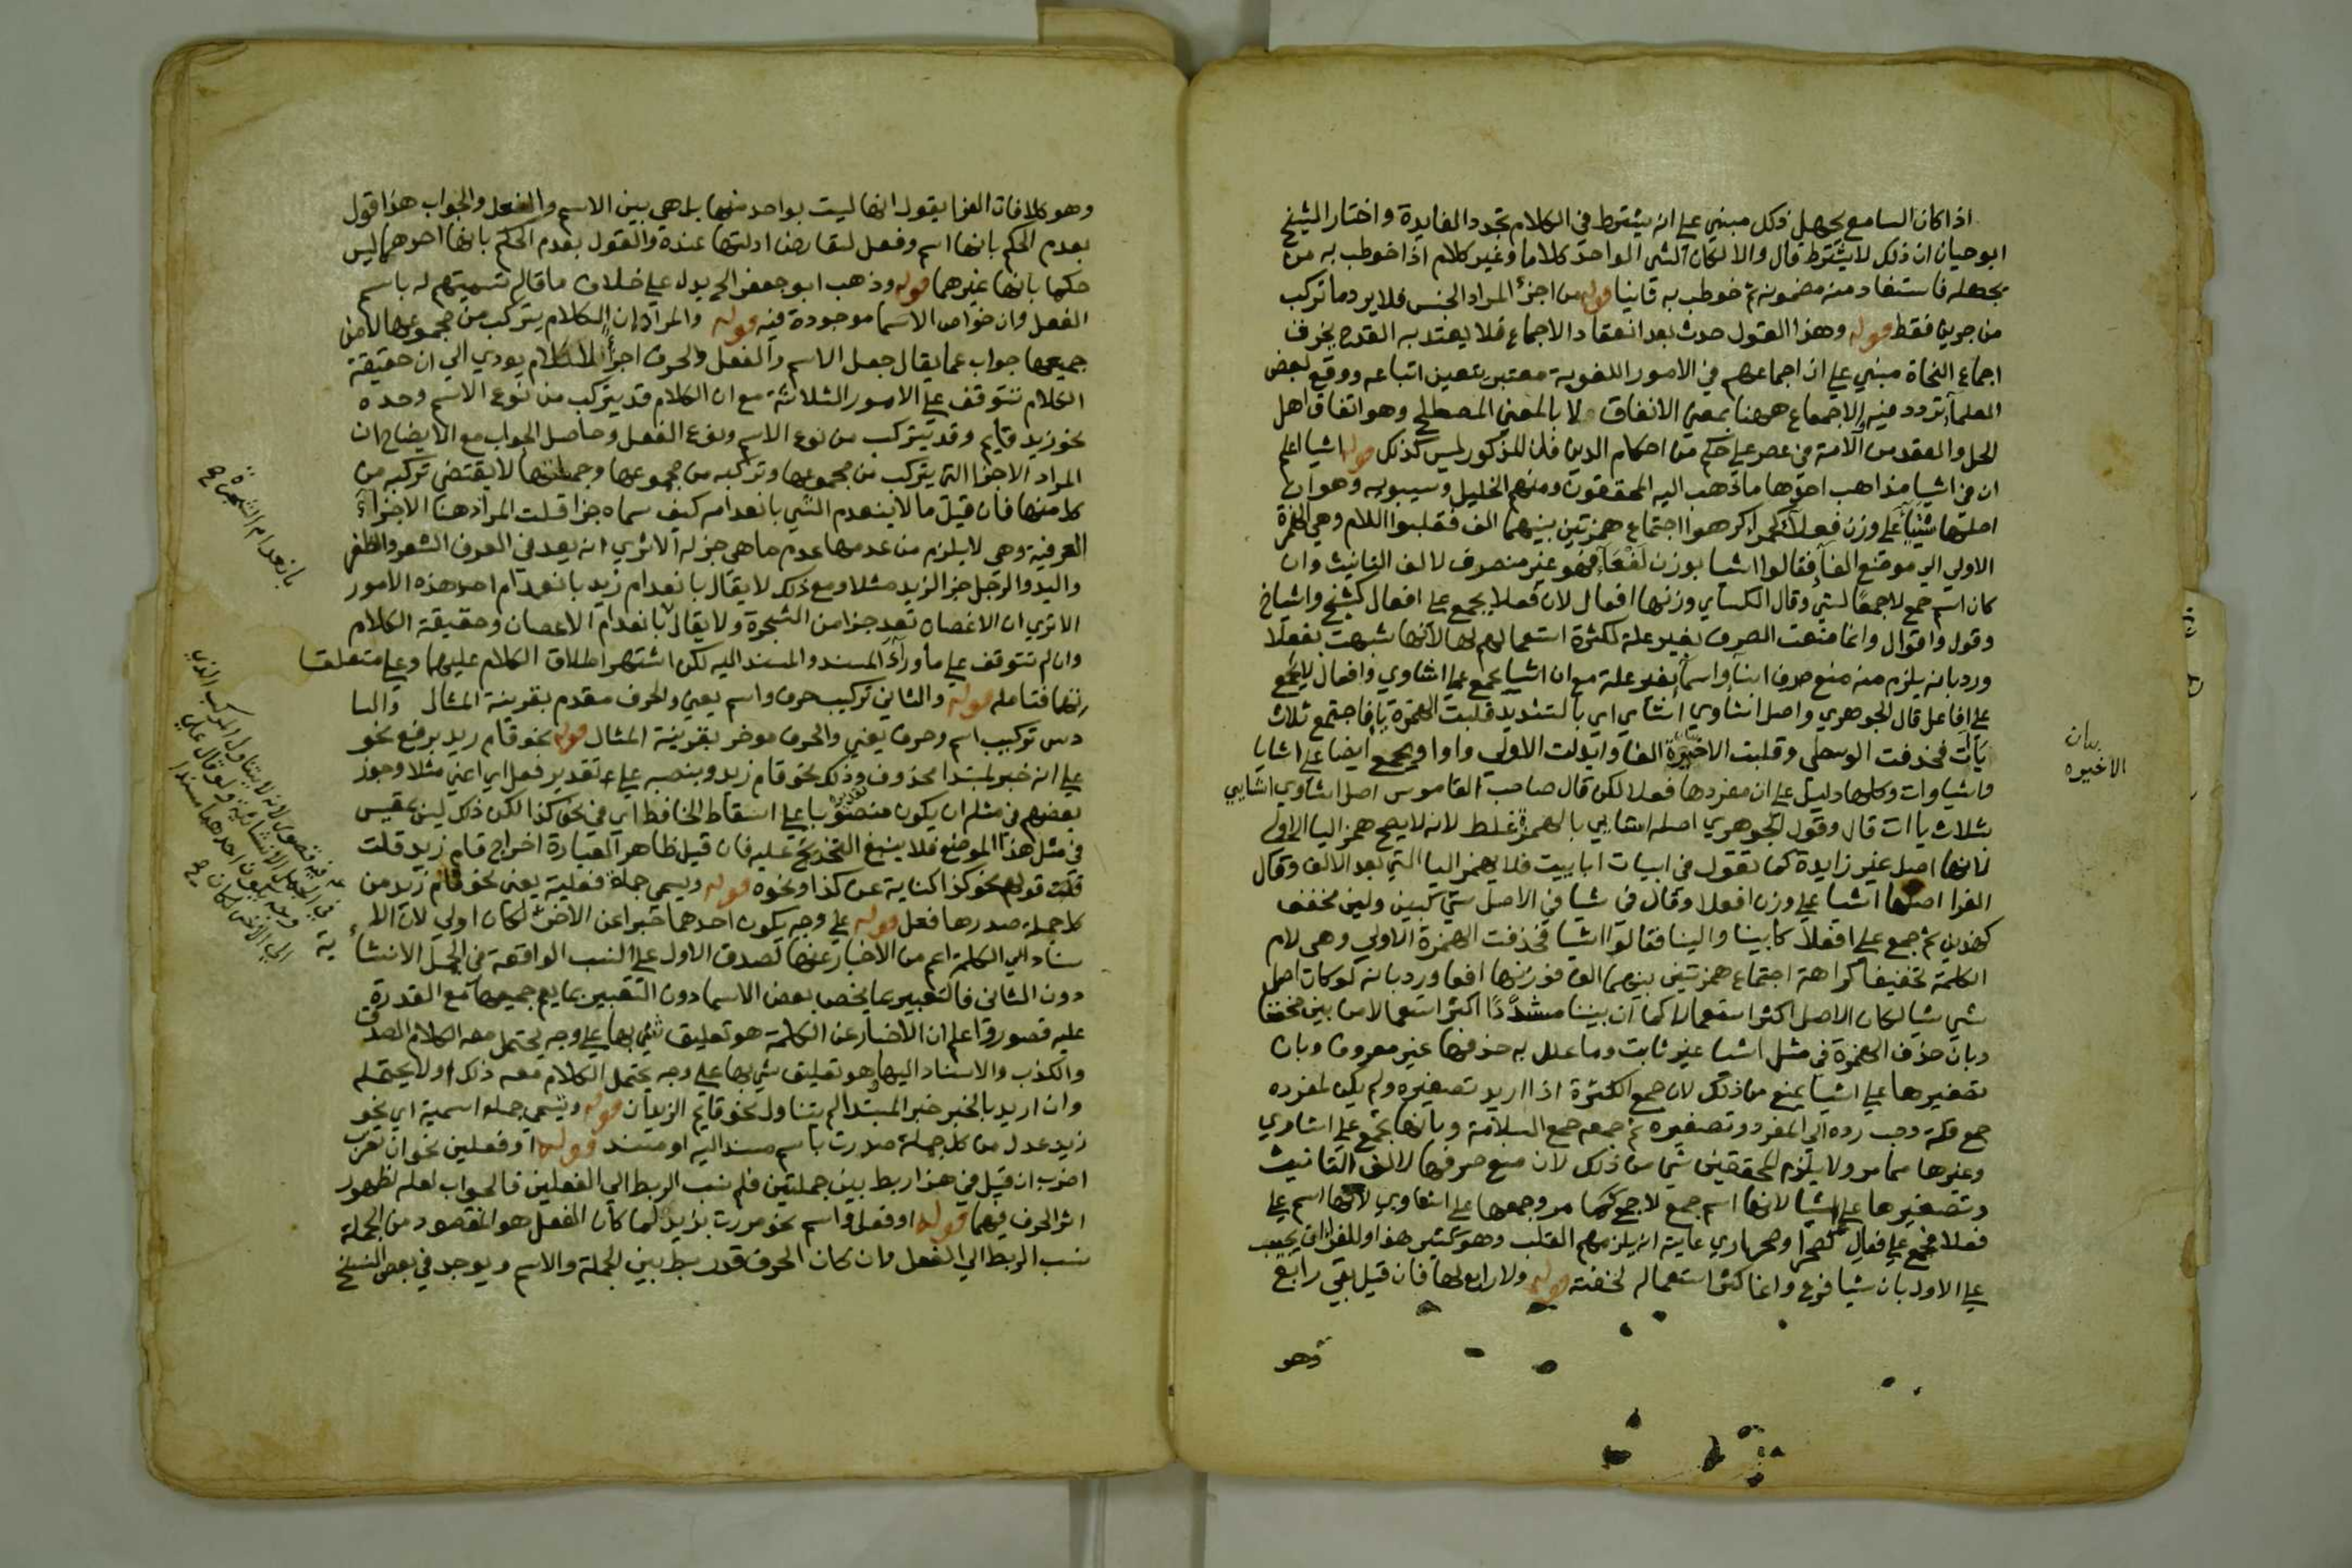 اذا كان السامع يجهل ذلك مبني على انه يشترط في الكلام تجدد الفايدة واختار الشيخ
ابو حيان ان ذلك لا يشترط قال والا لكان الشي الواحد كلاما وغير كلام اذا خوطب به من
يجهله فاستفاد منه مضمونه ثم خوطب به ثانيا قوله من اجزء المراد الجنس فلا يرد ما تركب
من جزين فقط قوله وهذا القول حدث بعد انعقاد الاجماع فلا يعتد به القدح بخرق
اجماع النحاة مبني على ان اجماعهم في الامور اللغوية معتبر يتعين اتباعه ووقع لبعض
العلماء تردد فيه والاجماع ههنا بمعنى الاتفاق لا بالمعنى المصطلح وهو اتفاق اهل
الحل والعقد من الامة في عصر على حكم من احكام الدين فان المذكور ليس كذلك قوله اشيا اعلم
ان في اشيا مذاهب احدها ما ذهب اليه المحققون ومنهم الخليل وسيبويه وهو ان
اصلها شيئا على وزن فعلاء كحمراء كرهوا اجتماع همزتين بينهما الف فقلبوا اللام وهي الهمزة
الاولى الى موضع الفا فقالوا اشيا بوزن لفعاء فهو غير منصرف لالف التانيث وان
كان اسم جمع لا جمعا لشي وقال الكساي وزنها افعال لان فعلا يجمع على افعال كشيخ واشياخ
وقول واقوال وانما منعت الصرف بغير علة لكثرة استعمالهم لها لانها شبهت بفعلا
ورد بانه يلزم منه منع صرف ابنا واسما بغير علة مع ان اشيا يجمع على اشاوي وافعال لا يجمع
على افاعل قال الجوهري واصل اشاوي اشاي اي بالتشديد قلبت الهمزة يا فاجتمع ثلاث
يآت فحذفت الوسطى وقلبت الاخيرة الفا وابدلت الاولى واوا ويجمع ايضا على اشايا
واشياوات وكلها دليل على ان مفردها فعلا لكن قال صاحب القاموس اصل اشاوي اشايي
بثلاث ياات قال وقول الجوهري اصله اشايي بالهمزة غلط لانه لا يصح همز اليا الاولى
لانها اصل غير زايدة كما تقول في ابيات ابابيت فلا يهمز اليا التي بعد الالف وقال
الفرا اصلها اشيا على وزن افعلا وقال في شيا في الاصل شيّ كبين ولين مخفف
كهذين ثم جمع على افعلا كابينا والينا فقالوا اشيا فحذفت الهمزة الاولى وهي لام
الكلمة تخفيفا كراهة اجتماع همزتين بينهما الف فوزنها افعا ورد بانه لو كان اصل
شي شيا لكان الاصل اكثر استعمالا كما ان بينا مشدّدًا اكثر استعمالا من بين مخففا
وبان حذف الهمزة في مثل اشيا غير ثابت وما علل به حذفها غير معروف وبان
تصغيرها على اشيا يمنع من ذلك لان جمع الكثرة اذا اريد تصغيره ولم يكن لمفرده
جمع قلة وجب رده الى المفرد وتصغيره ثم جمعه جمع السلامة وبانها تجمع على اشاوي
وغيرها مما مر ولا يلزم المحققين شي من ذلك لان منع صرفها لالف التانيث
وتصغيرها على اشيا لانها اسم جمع لا جمع كما مر وجمعها على اشاوي لانها اسم على
فعلا فجمع على فعالى كصحرا وصحاري غايته انه يلزمهم القلب وهو كثير هذا وللفرا ان يجيب
على الاول بان شيا فرع وانما كثر استعماله لخفته قوله ولا رابع لها فان قيل بقي رابع
وهو
بيان
الاخيره
وهو كلا فان الفرا يقول انها ليست بواحد منها بل هي بين الاسم والفعل والجواب هذا قول
بعدم الحكم بانها اسم وفعل لتعارض ادلتها عنده والقول بعدم الحكم بانها احدهما ليس
حكما بانها غيرهما قوله وذهب ابو جعفر الخ يدل على خلاف ما قاله تسميتهم له باسم
الفعل وان خواص الاسما موجودة فيه قوله والمراد ان الكلام يتركب من مجموعها لا من
جميعها جواب عما يقال جعل الاسم والفعل والحرف اجزاء للكلام يودي الى ان حقيقة
الكلام تتوقف على الامور الثلاثة مع ان الكلام قد يتركب من نوع الاسم وحده
نحو زيد قايم وقد يتركب من نوع الاسم ونوع الفعل وحاصل الجواب مع الايضاح ان
المراد الاجزا التي يتركب من مجموعها وتركبه من مجموعها وجملتها لا يقتضي تركبه من
كل منها فان قيل ما لا ينعدم الشي بانعدامه كيف سماه جزا قلت المراد هنا الاجزاء
العرفية وهي لا يلزم من عدمها عدم ما هي جز له الا ترى انه يعد في العرف الشعر والظفر
واليد والرجل جز الزيد مثلا ومع ذلك لا يقال بانعدام زيد بانعدام احد هذه الامور
الا ترى ان الاغصان تعد جزا من الشجرة ولا يقال بانعدام الاغصان وحقيقة الكلام
وان لم تتوقف على ما وراء المسند والمسند اليه لكن اشتهر اطلاق الكلام عليهما وعلى متعلقا
تهما فتامله قوله والثاني تركيب حرف واسم يعني والحرف مقدم بقرينة المثال والسا
دس تركيب اسم وحرف يعني والحرف موخر بقرينة المثال قوله نحو قام زيد برفع نحو
على انه خبر لمبتدا محذوف وذلك نحو قام زيد وبنصبه على تقدير فعل اي اعني مثلا وجوز
بعضهم في مثله ان يكون منصوبا على اسقاط الخافض اي في نحو كذا لكن ذلك ليس بمقيس
في مثل هذا الموضع فلا ينبغي التخريج عليه فان قيل ظاهر العبارة اخراج قام زيد قلت
قلت قولهم نحو كذا كناية عن كذا ونحوه قوله ويسمى جملة فعلية يعني نحو قام زيد من
كل جملة صدرها فعل قوله على وجه يكون احدهما خبرا عن الاخر لكان اولى لان الا
سناد الى الكلمة اعم من الاخبار عنها لصدق الاول على النسب الواقعة في الجمل الانشا
ئية
دون الثاني فالتعبير بما يخص بعض الاسما دون التعبير بما يعم جميعها مع القدرة
عليه قصور واعلم ان الاخبار عن الكلمة هو تعليق شي بها على وجه يحتمل معه الكلام الصدق
والكذب والاسناد اليها هو تعليق شي بها على وجه يحتمل الكلام معه ذلك او لا يحتمله
وان اريد بالخبر خبر المبتدا لم يتناول نحو قايم الزيدان قوله ويسمى جملة اسمية اي نحو
زيد عدل من كل جملة صدرت باسم مسند اليه او مسند قوله او فعلين نحو ان تضرب
اضرب ان قيل في هذا ربط بين جملتين فلم نسب الربط الى الفعلين فالجواب لعله لظهور
اثر الحرف فيهما قوله او فعل واسم نحو مررت بزيد لما كان الفعل هو المقصود من الجملة
نسب الربط الى الفعل وان كان الحرف قد ربط بين الجملة والاسم ويوجد في بعض النسخ
بانعدام الشجرة صح